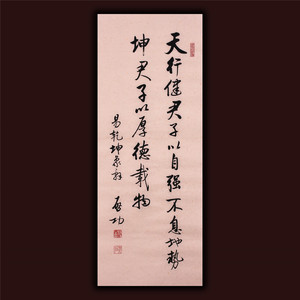 天行健君子以自强不息地势
坤君子以厚德载物
易乾坤象辞 启功